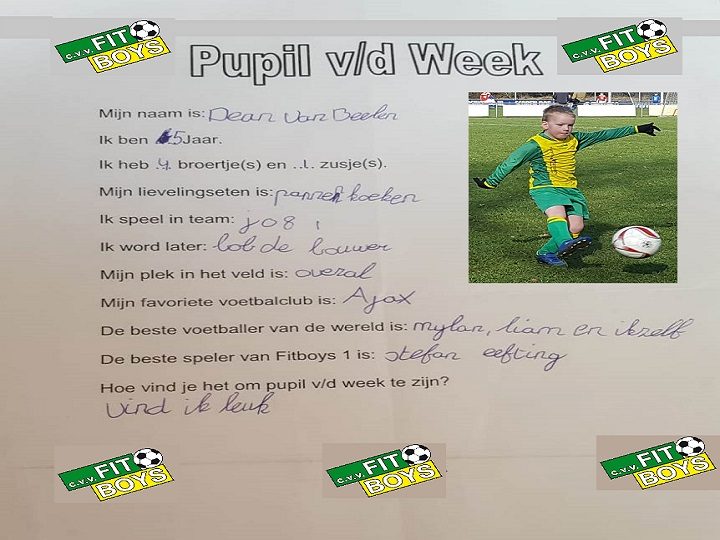 c.v.v. FIT BOYS
c.v.v. FIT BOYS
Pupil v/d Week
Mijn naam is: Dean van Beelen
Ik ben 5 Jaar.
Ik heb .1. broertje(s) en ..1. zusje(s).
Mijn lievelingseten is: pannenkoeken
Ik speel in team: jo8 1
Ik word later: bob de bouwer
Mijn plek in het veld is: overal
Mijn favoriete voetbalclub is: Ajax
De beste voetballer van de wereld is: mylan, liam en ikzelf
De beste speler van Fitboys 1 is: stefan eefting
Hoe vind je het om pupil v/d week te zijn?
vind ik leuk
c.v.v. FIT BOYS
c.v.v. FIT BOYS
c.v.v. FIT BOYS